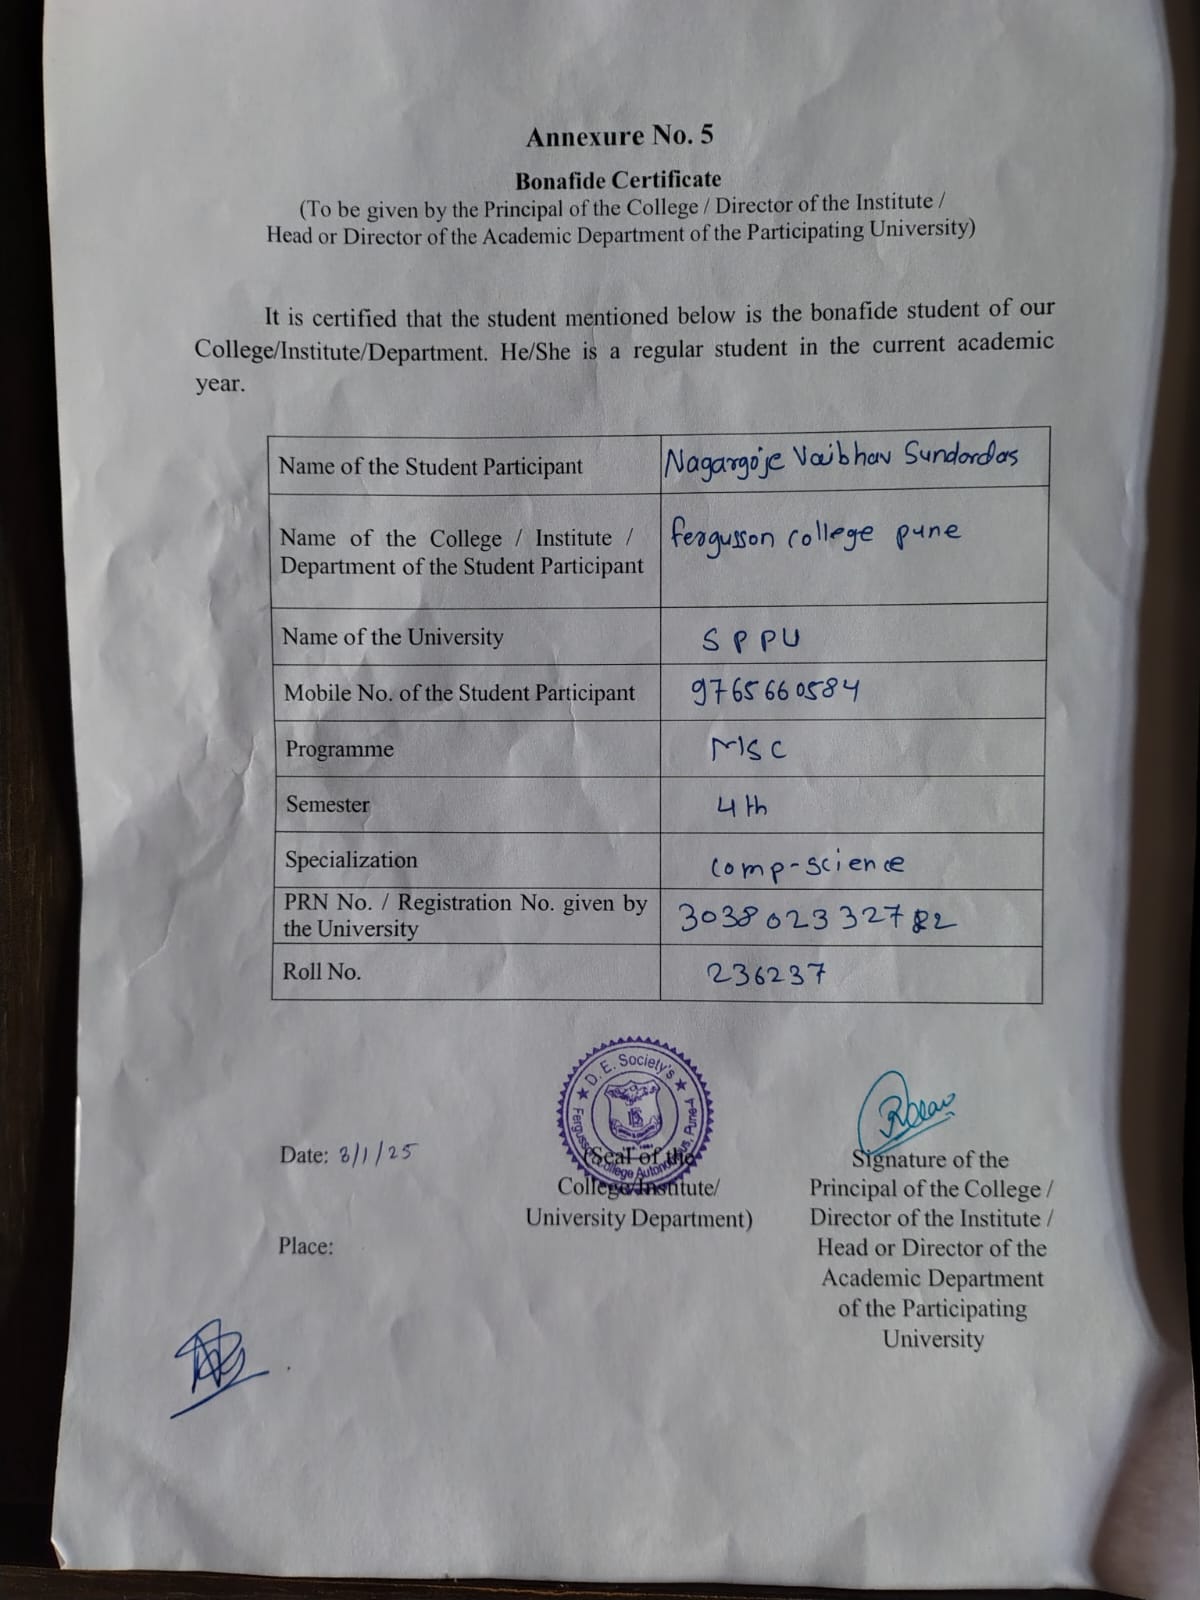 Annexure No. 5
Bonafide Certificate
(To be given by the Principal of the College / Director of the Institute /
Head or Director of the Academic Department of the Participating University)
It is certified that the student mentioned below is the bonafide student of our
College/Institute/Department. He/She is a regular student in the current academic
year.
Name of the Student Participant
Nagargoje Vaibhav Sundardas
Name of the College / Institute /
Department of the Student Participant
Fergusson college pune
Name of the University
SPPU
Mobile No. of the Student Participant
9765660584
Programme
MSC
Semester
4th
Specialization
comp-science
PRN No. / Registration No. given by
the University
Roll No.
236237
D. E. Society's
Fergusson College Autonomous, Pune-4
Date: 3/1/25
(Seal of the
College/Institute/
University Department)
Place:
Signature of the
Principal of the College /
Director of the Institute /
Head or Director of the
Academic Department
of the Participating
University